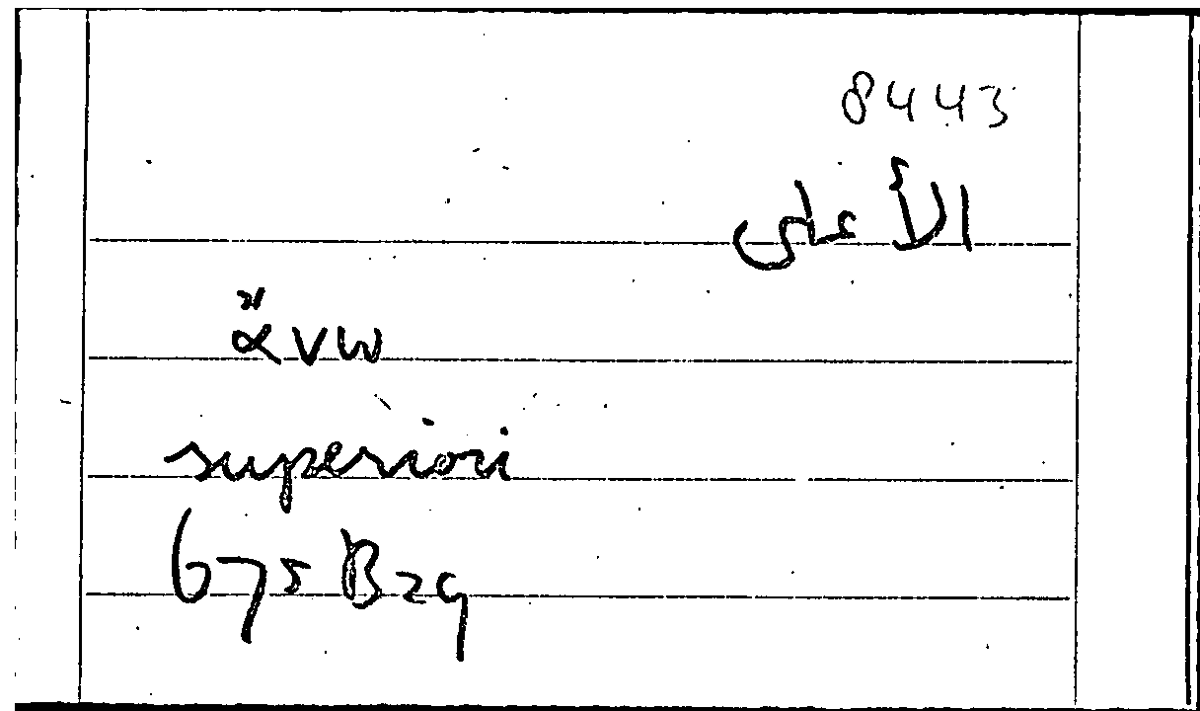 8443
الأعلى
ἄνω
superiori
675 B29